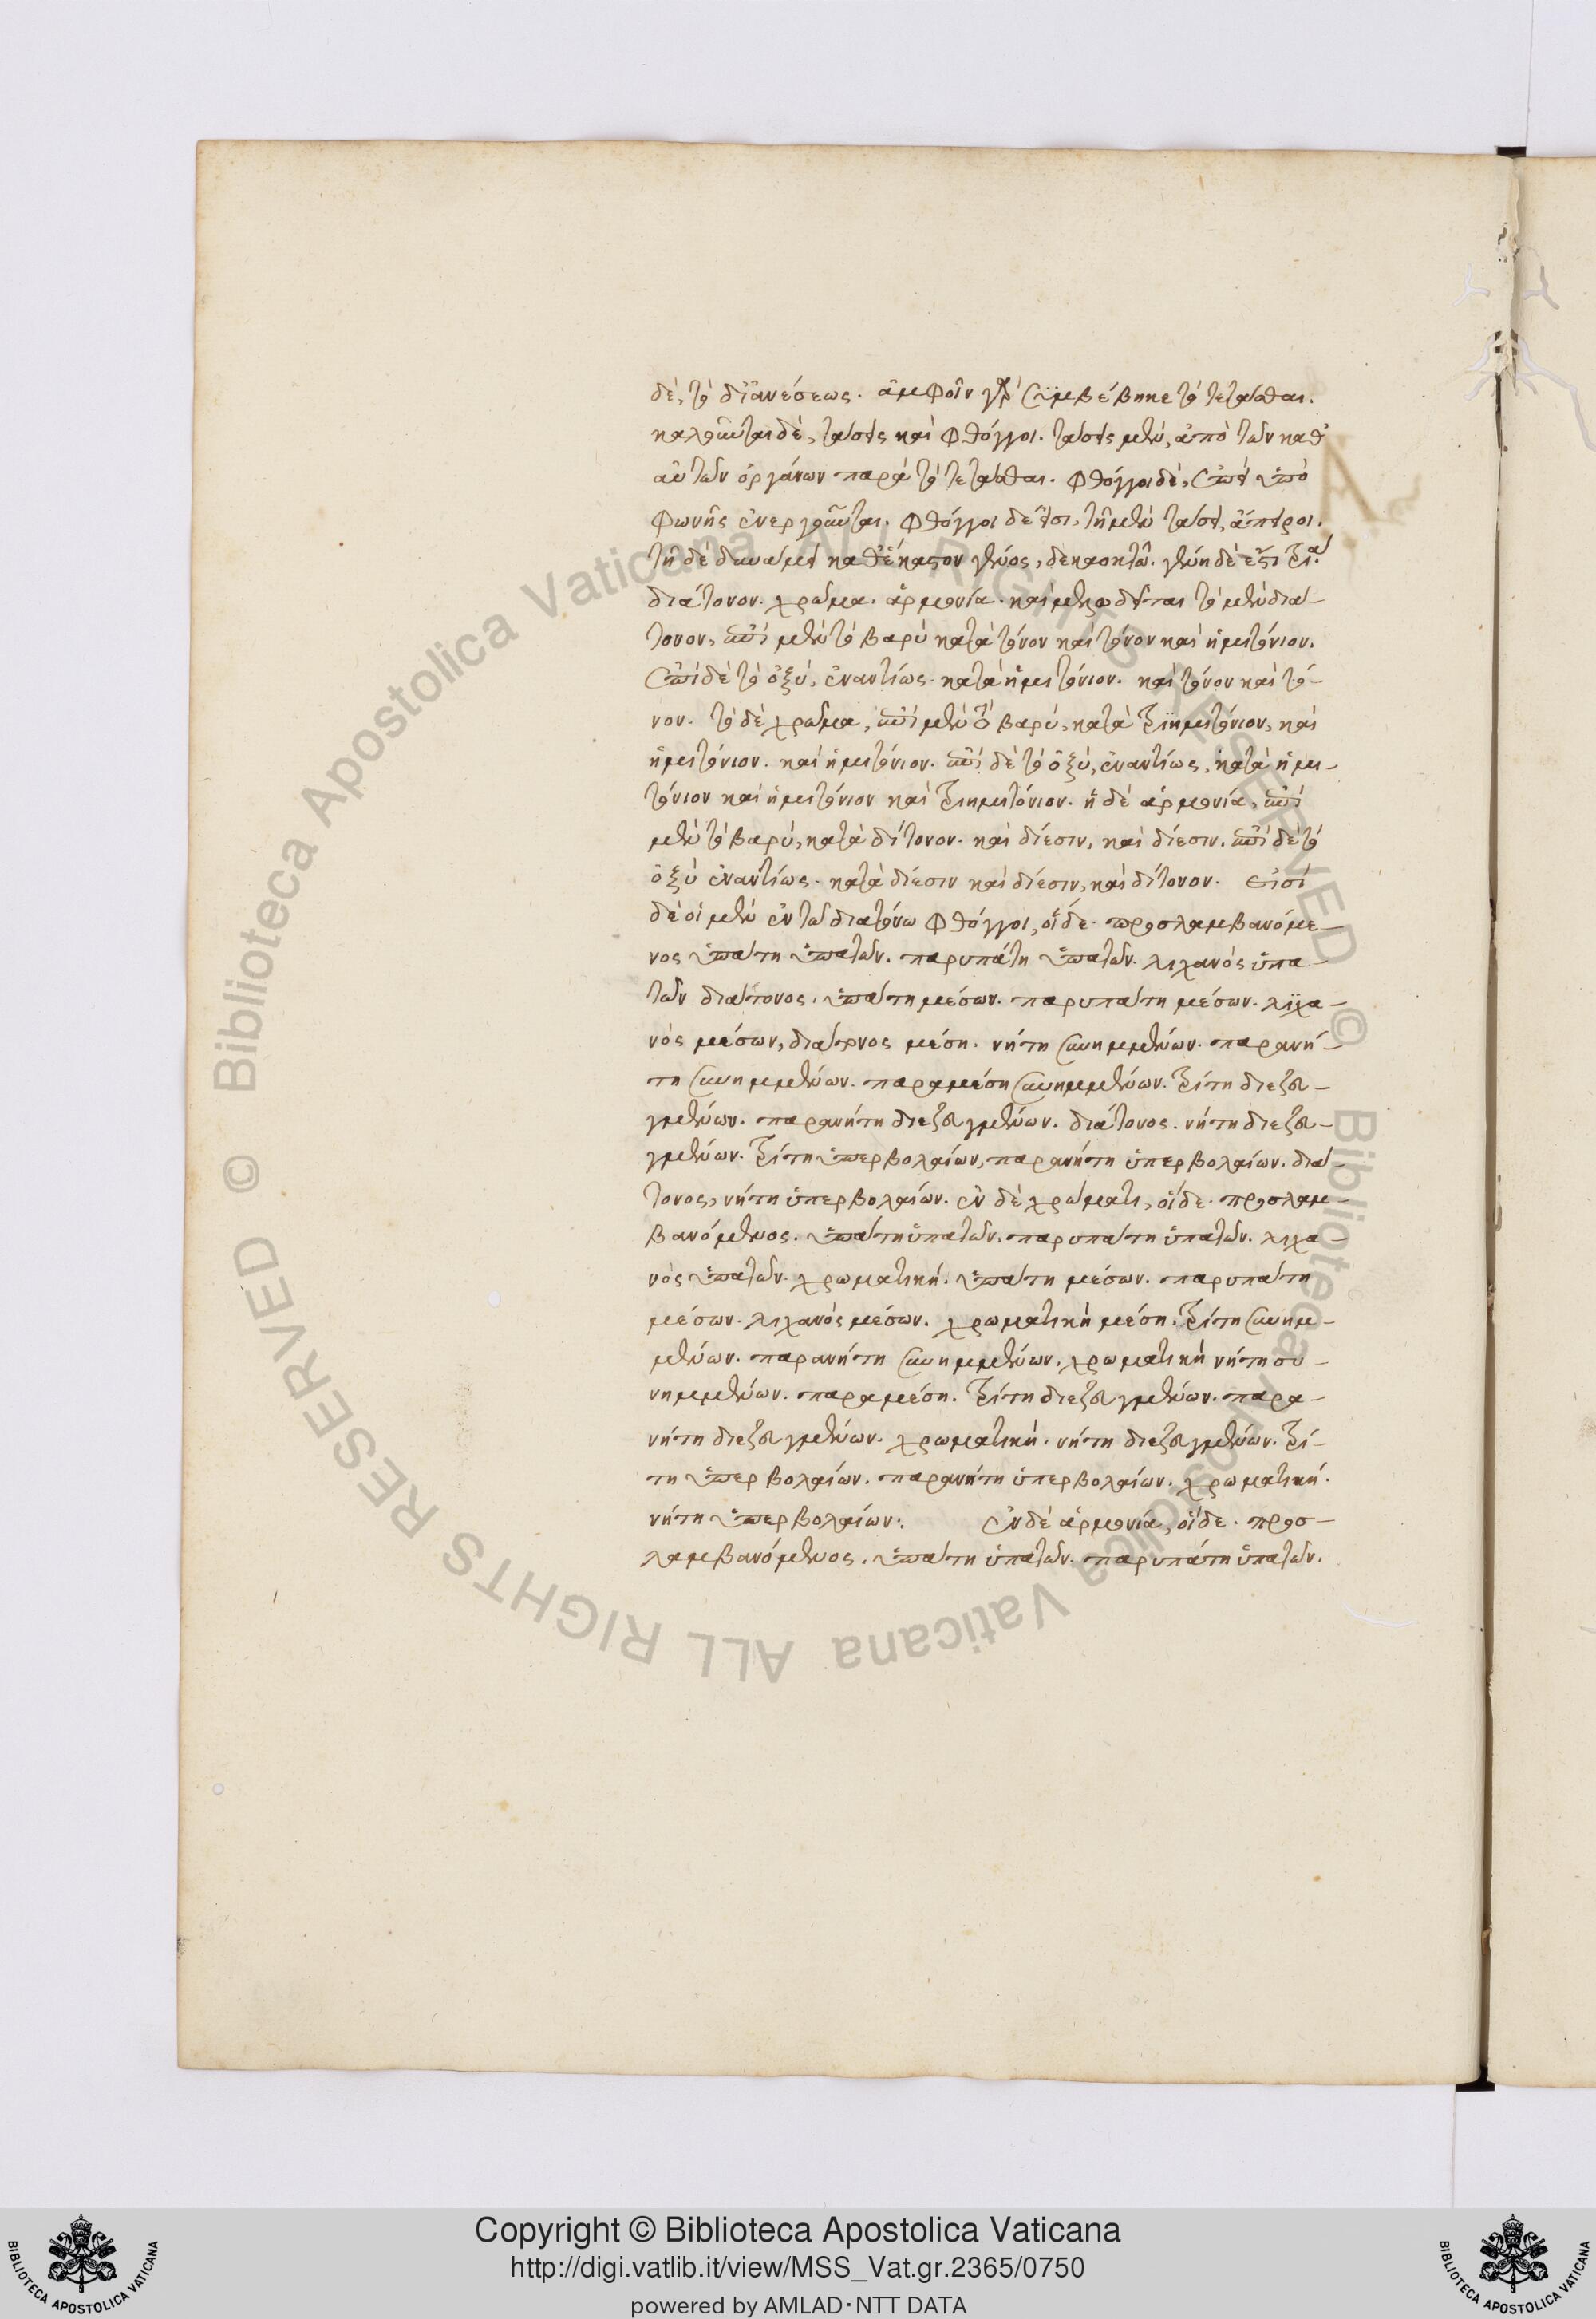 δὲ, τὸ δι᾽ ἀνέσεως. ἀμφοῖν γὰρ συμβέβηκε τὸ τετάσθαι.
καλοῦνται δὲ, τάσεις καὶ φθόγγοι. τάσεις μὲν, ἀπὸ τῶν καθ᾽
αὐτῶν ὀργάνων παρὰ τὸ τετάσθαι. φθόγγοι δὲ, ἐπεὶ ὑπὸ
φωνῆς ἐνεργοῦνται. φθόγγοι δέ εἰσι, τῇ μὲν τάσει, ἄπειροι.
τῇ δὲ δυνάμει καθ᾽ ἕκαστον γένος, δεκαοκτώ. γένη δὲ ἐστι τρία.
διάτονον. χρῶμα. ἁρμονία. καὶ μελῳδεῖται τὸ μὲν διά-
τονον, ἐπὶ μὲν τὸ βαρὺ κατὰ τόνον καὶ τόνον καὶ ἡμιτόνιον.
ἐπὶ δὲ τὸ ὀξύ, ἐναντίως. κατὰ ἡμιτόνιον. καὶ τόνον καὶ τό-
νον. τὸ δὲ χρῶμα, ἐπὶ μὲν τὸ βαρύ, κατὰ τριημιτόνιον, καὶ
ἡμιτόνιον. καὶ ἡμιτόνιον. ἐπὶ δὲ τὸ ὀξύ, ἐναντίως, κατὰ ἡμι-
τόνιον καὶ ἡμιτόνιον καὶ τριημιτόνιον. ἡ δὲ ἁρμονία, ἐπὶ
μὲν τὸ βαρύ, κατὰ δίτονον. καὶ δίεσιν, καὶ δίεσιν. ἐπὶ δὲ τὸ
ὀξὺ ἐναντίως. κατὰ δίεσιν καὶ δίεσιν, καὶ δίτονον. εἰσὶ
δὲ οἱ μὲν ἐν τῷ διατόνω φθόγγοι, οἵδε. προσλαμβανόμε-
νος ὑπάτη ὑπατῶν. παρυπάτη ὑπατῶν. λιχανὸς ὑπα-
τῶν διάτονος. ὑπάτη μέσων. παρυπάτη μέσων. λιχα-
νὸς μέσων, διάτονος μέση. νήτη συνημμένων. παρανή-
τη συνημμένων. παραμέση συνημμένων. τρίτη διεζευ-
γμένων. παρανήτη διεζευγμένων. διάτονος. νήτη διεζευ-
γμένων. τρίτη ὑπερβολαίων, παρανήτη ὑπερβολαίων. διά-
τονος, νήτη ὑπερβολαίων. ἐν δὲ χρώματι, οἵδε. προσλαμ-
βανόμενος. ὑπάτη ὑπατῶν. παρυπάτη ὑπατῶν. λιχα-
νὸς ὑπατῶν. χρωματική. ὑπάτη μέσων. παρυπάτη
μέσων. λιχανὸς μέσων. χρωματικὴ μέση. τρίτη συνημ-
μένων. παρανήτη συνημμένων. χρωματικὴ νήτη συ-
νημμένων. παραμέση. τρίτη διεζευγμένων. παρα-
νήτη διεζευγμένων. χρωματική. νήτη διεζευγμένων. τρί-
τη ὑπερβολαίων. παρανήτη ὑπερβολαίων. χρωματική.
νήτη ὑπερβολαίων. ἐν δὲ ἁρμονία, οἵδε. προσ-
λαμβανόμενος. ὑπάτη ὑπατῶν. παρυπάτη ὑπατῶν.
© Biblioteca Apostolica Vaticana ALL RIGHTS RESERVED
© Biblioteca Apostolica Vaticana ALL RIGHTS RESERVED
Copyright © Biblioteca Apostolica Vaticana
http://digi.vatlib.it/view/MSS_Vat.gr.2365/0750
powered by AMLAD·NTT DATA
BIBLIOTECA APOSTOLICA VATICANA
BIBLIOTECA APOSTOLICA VATICANA